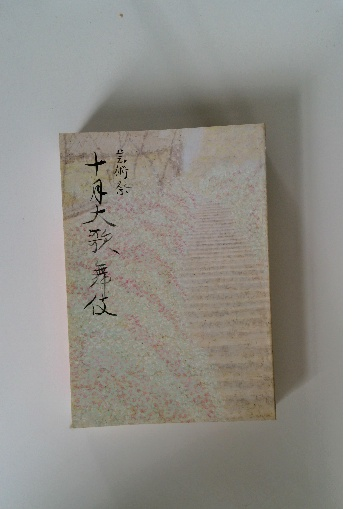 芸術祭
十月大歌舞伎